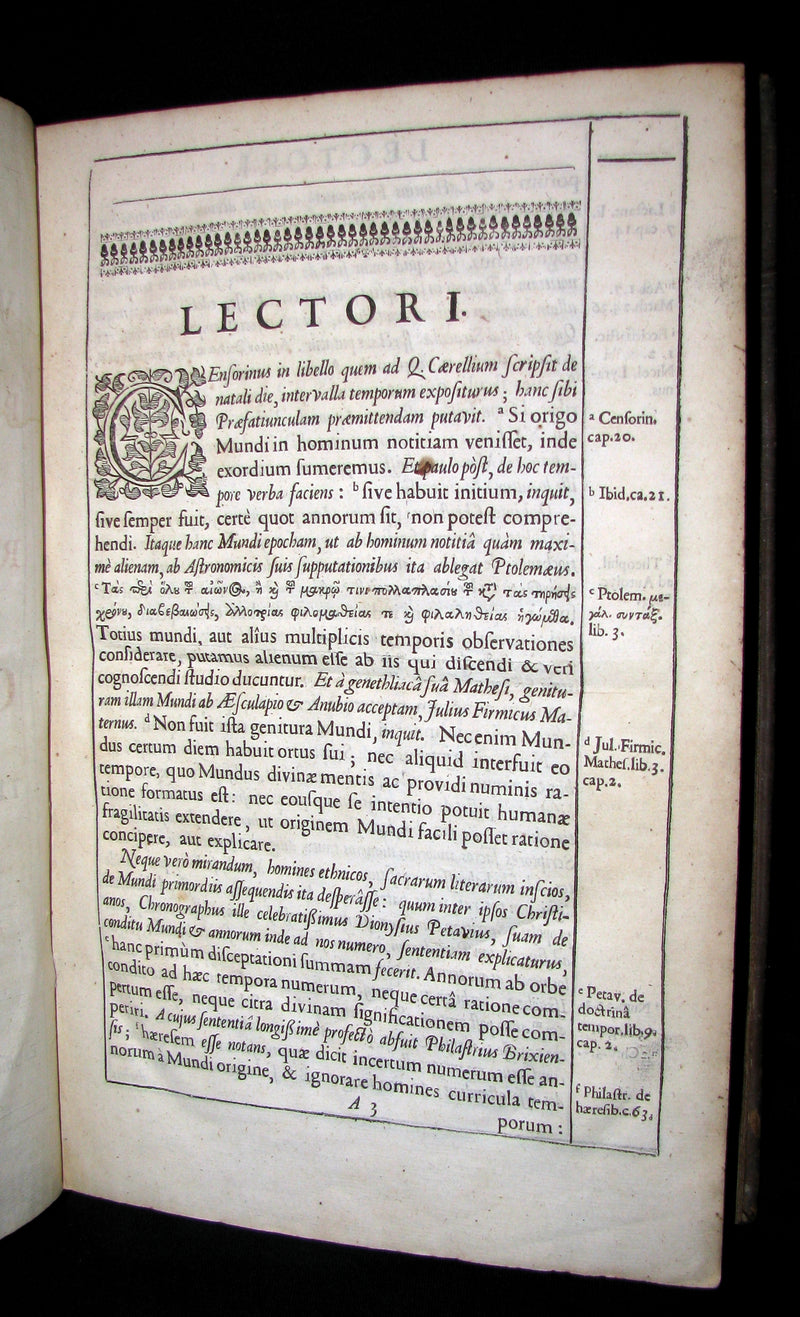 LECTORI.
CEnſorinus in libello quem ad Q. Cærellium ſcripſit de
natali die, intervalla temporum expoſiturus; hanc ſibi
Præfatiunculam præmittendam putavit. ᵃ Si origo
Mundi in hominum notitiam veniſſet, inde
exordium ſumeremus. Et paulo pòſt, de hoc tem-
pore verba faciens: ᵇ ſive habuit initium, inquit,
ſive ſemper fuit, certè quot annorum ſit, non poteſt compre-
hendi. Itaque hanc Mundi epocham, ut ab hominum notitiâ quàm maxi-
mè alienam, ab Aſtronomicis ſuis ſupputationibus ita ablegat Ptolemæus.
ᶜ Τὰς ὅλου αἰῶνος, ἢ πολλαπλασίου τὰς τηρήσεις
χρόνου, διαβεβαιώσεις, ἀλλοτρίας φιλομαθείας τε καὶ φιλαληθείας ἡγούμεθα.
Totius mundi, aut alîus multiplicis temporis obſervationes
conſiderare, putamus alienum eſſe ab iis qui diſcendi & veri
cognoſcendi ſtudio ducuntur. Et à genethliacâ ſuâ Matheſi, genitu-
ram illam Mundi ab Æſculapio & Anubio acceptam, Julius Firmicus Ma-
ternus. ᵈ Non fuit iſta genitura Mundi, inquit. Nec enim Mun-
dus certum diem habuit ortus ſui; nec aliquid interfuit eo
tempore, quo Mundus divinæ mentis ac providi numinis ra-
tione formatus eſt: nec eouſque ſe intentio potuit humanæ
fragilitatis extendere, ut originem Mundi facili poſſet ratione
concipere, aut explicare.
Neque verò mirandum, homines ethnicos, ſacrarum literarum inſcios,
de Mundi primordiis aſſequendis ita deſperâſſe: quum inter ipſos Chriſti-
anos, Chronographus ille celebratißimus Dionyſius Petavius, ſuam de
conditu Mundi & annorum inde ad nos numero, ſententiam explicaturus,
ᵉ hanc primùm diſceptationi ſummam fecerit. Annorum ab orbe
condito ad hæc tempora numerum, neque certâ ratione com-
pertum eſſe, neque citra divinam ſignificationem poſſe com-
periri. A cujus ſententiâ longißimè profectò abfuit Philaſtrius Brixien-
ſis; ᶠ hæreſem eſſe notans, quæ dicit incertum numerum eſſe an-
norum à Mundi origine, & ignorare homines curricula tem-
A 3
porum:
ᵃ Cenſorin.
cap.20.
ᵇ Ibid.ca.21.
ᶜ Ptolem. με-
γάλ. συντάξ.
lib. 3.
ᵈ Jul. Firmic.
Matheſ.lib.3.
cap.2.
ᵉ Petav. de
doctrinâ
tempor.lib.9.
cap. 2.
ᶠ Philaſtr. de
hæreſib.c.63.